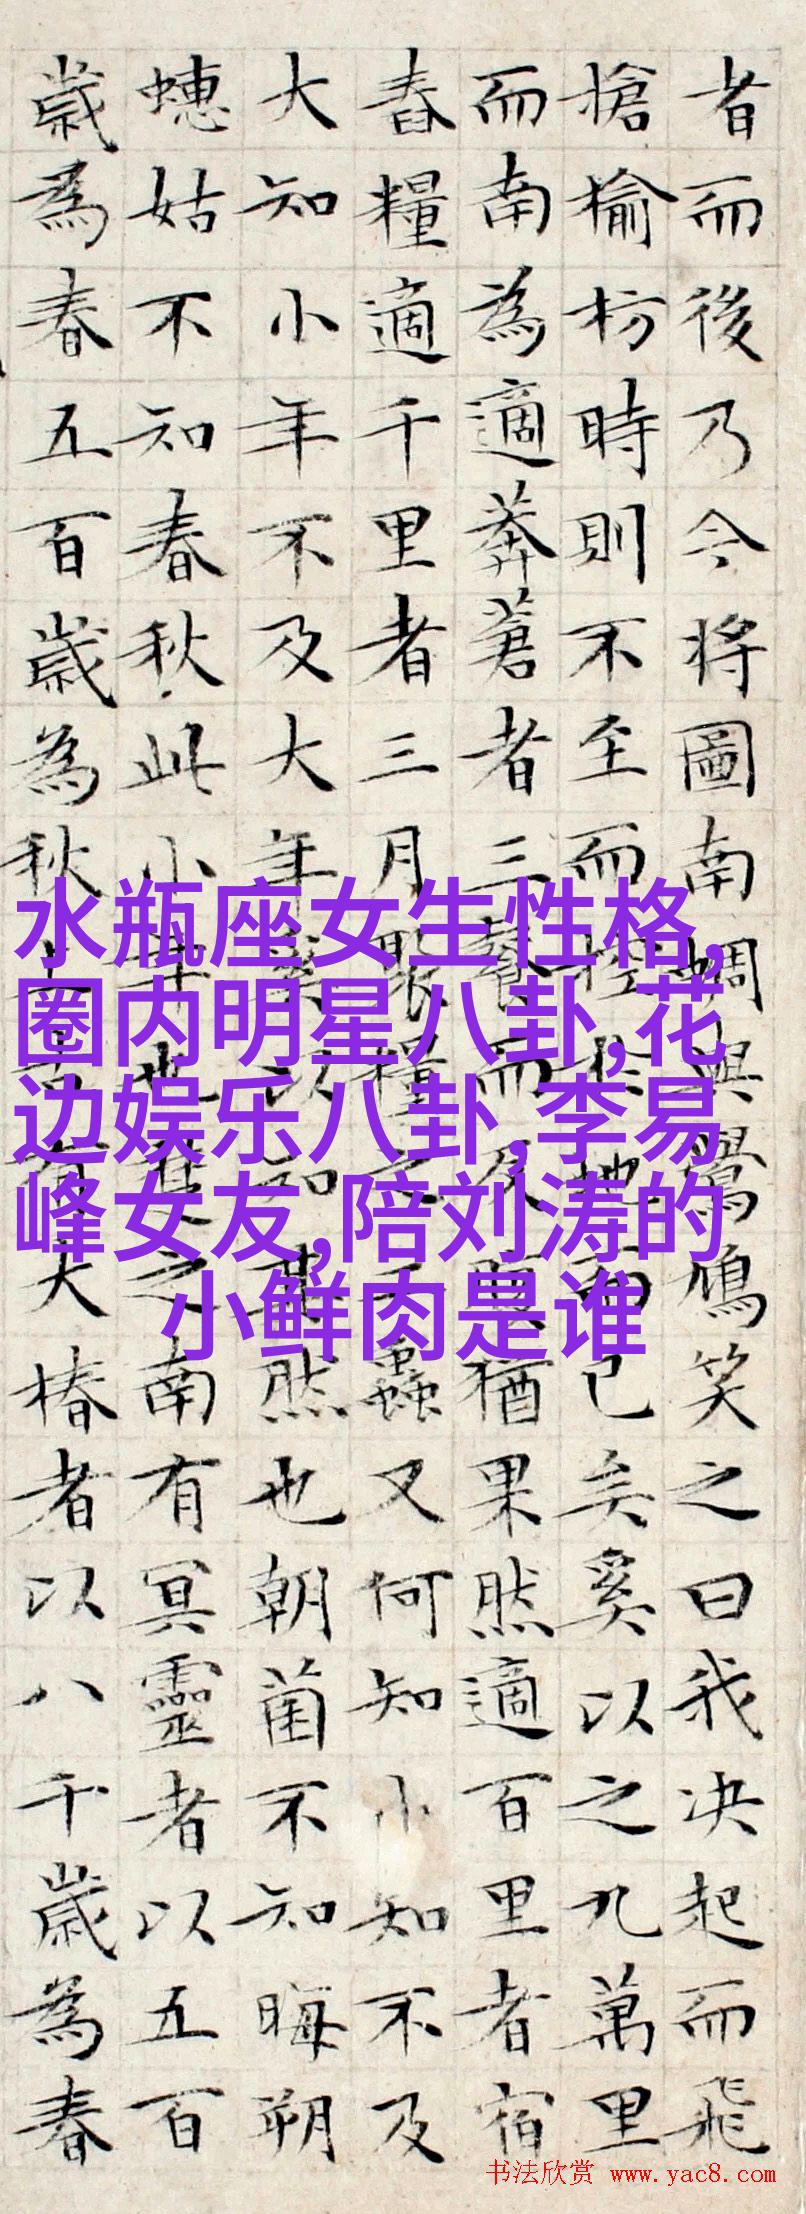 者而後乃今将圖南蜩與鷽鳩笑之曰我决起而飛
搶榆枋時則不至而控於地而已矣奚以之九萬里
而南為適莽蒼者三餐而反腹猶果然適百里者宿
舂糧適千里者三月聚糧之二蟲又何知小知不及
大知小年不及大年奚以知其然也朝菌不知晦朔
蟪姑不知春秋此小年也楚之南有冥靈者以五百
歲為春五百歲為秋上古有大椿者以八千歲為春
水瓶座女生性格,
圈内明星八卦,花
边娱乐八卦,李易
峰女友,陪刘涛的
小鲜肉是谁
书法欣赏 www.yac8.com